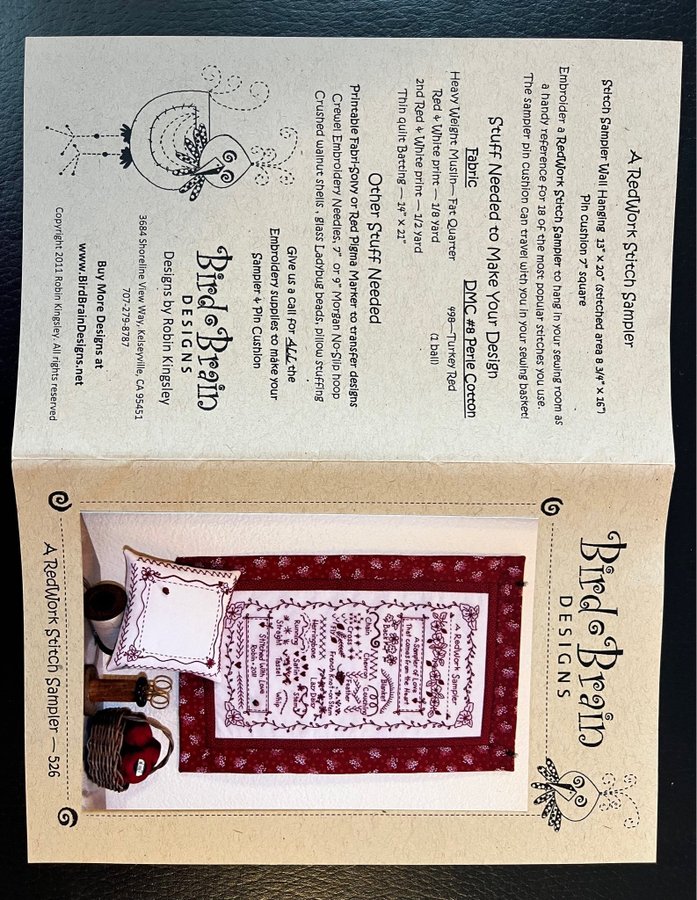 A RedWork Stitch Sampler
Stitch Sampler Wall Hanging 13" x 20" (stitched area 8 3/4" x 16")
Pin cushion 7" square
Embroider a RedWork Stitch Sampler to hang in your sewing room as
a handy reference for 18 of the most popular stitches you use.
The sampler pin cushion can travel with you in your sewing basket!
Stuff Needed to Make Your Design
Fabric
Heavy Weight Muslin— Fat Quarter
Red & White print — 1/8 yard
2nd Red & White print — 1/2 yard
Thin quilt Batting — 14" X 21"
DMC #8 Perle Cotton
498—Turkey Red
(1 ball)
Other Stuff Needed
Printable Fabri-Solvy or Red Pigma Marker to transfer designs
Crewel Embroidery Needles, 7" or 9" Morgan No-Slip hoop
Crushed walnut shells, glass Ladybug beads, pillow stuffing
Give us a call for ALL the
Embroidery supplies to make your
Sampler & Pin Cushion
Bird Brain
DESIGNS
Designs by Robin Kingsley
3684 Shoreline View Way, Kelseyville, CA 95451
707-279-8787
Buy More Designs at
www.BirdBrainDesigns.net
Copyright 2011 Robin Kingsley. All rights reserved
Bird Brain
DESIGNS
A RedWork Sampler
A Sampler of Love
that comes from the Heart
Back
Blanket
Chain
Couching
Cross
Feather
French Knot
Stem
Herringbone
Lazy Daisy
Running
Satin
Straight
Tassel
Whip
Stitched With Love
Robin • 2011
A RedWork Stitch Sampler — 526